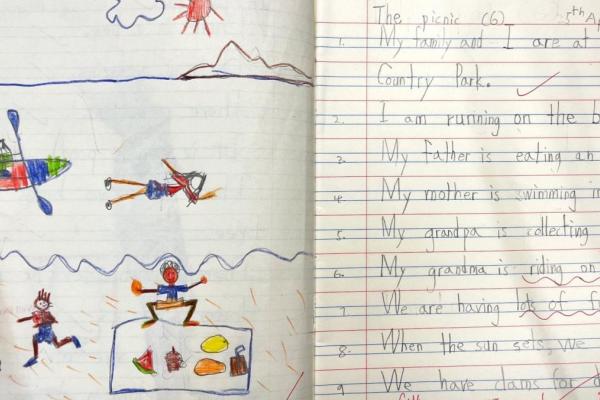 The picnic (6) 5th A
1. My family and I are at
Country Park.
2. I am running on the b
3. My father is eating an
4. My mother is swimming in
5. My grandpa is collecting
6. My grandma is riding on
7. We are having lots of f
8. When the sun sets, We
9 We have clams for d